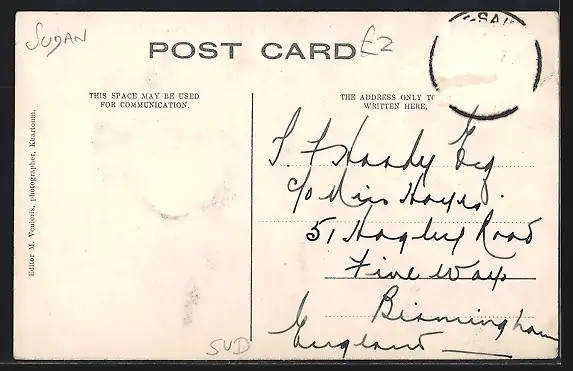 SUDAN
POST CARD
£2
SAI
THIS SPACE MAY BE USED
FOR COMMUNICATION.
THE ADDRESS ONLY TO
WRITTEN HERE.
Editor M. Venieris, photographer, Khartoum.
S. F. Handy Esq
c/o Miss Hayes.
51 Hagley Road
Five Ways
Birmingham
England
SUD